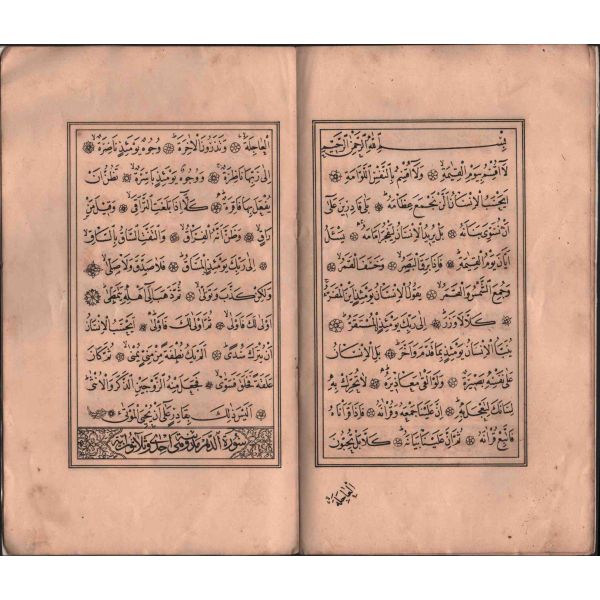 بسم الله الرحمن الرحيم
لا اقسم بيوم القيمة ولا اقسم بالنفس اللوامة
ايحسب الانسان الن نجمع عظامه بلى قادرين على
ان نسوى بنانه بل يريد الانسان ليفجر امامه يسئل
ايان يوم القيمة فاذا برق البصر وخسف القمر
وجمع الشمس والقمر يقول الانسان يومئذ اين المفر
كلا لا وزر الى ربك يومئذ المستقر
ينبؤا الانسان يومئذ بما قدم واخر بل الانسان
على نفسه بصيرة ولو القى معاذيره لا تحرك به
لسانك لتعجل به ان علينا جمعه وقرانه فاذا قراناه
فاتبع قرانه ثم ان علينا بيانه كلا بل تحبون
العاجلة
العاجلة وتذرون الاخرة وجوه يومئذ ناضرة
الى ربها ناظرة ووجوه يومئذ باسرة تظن ان
يفعل بها فاقرة كلا اذا بلغت التراقى وقيل من
راق وظن انه الفراق والتفت الساق بالساق
الى ربك يومئذ المساق فلا صدق ولا صلى
ولكن كذب وتولى ثم ذهب الى اهله يتمطى
اولى لك فاولى ثم اولى لك فاولى ايحسب الانسان
ان يترك سدى الم يك نطفة من منى يمنى ثم كان
علقة فخلق فسوى فجعل منه الزوجين الذكر والانثى
اليس ذلك بقادر على ان يحيى الموتى
سورة الدهر مدنية وهى احدى وثلاثون اية